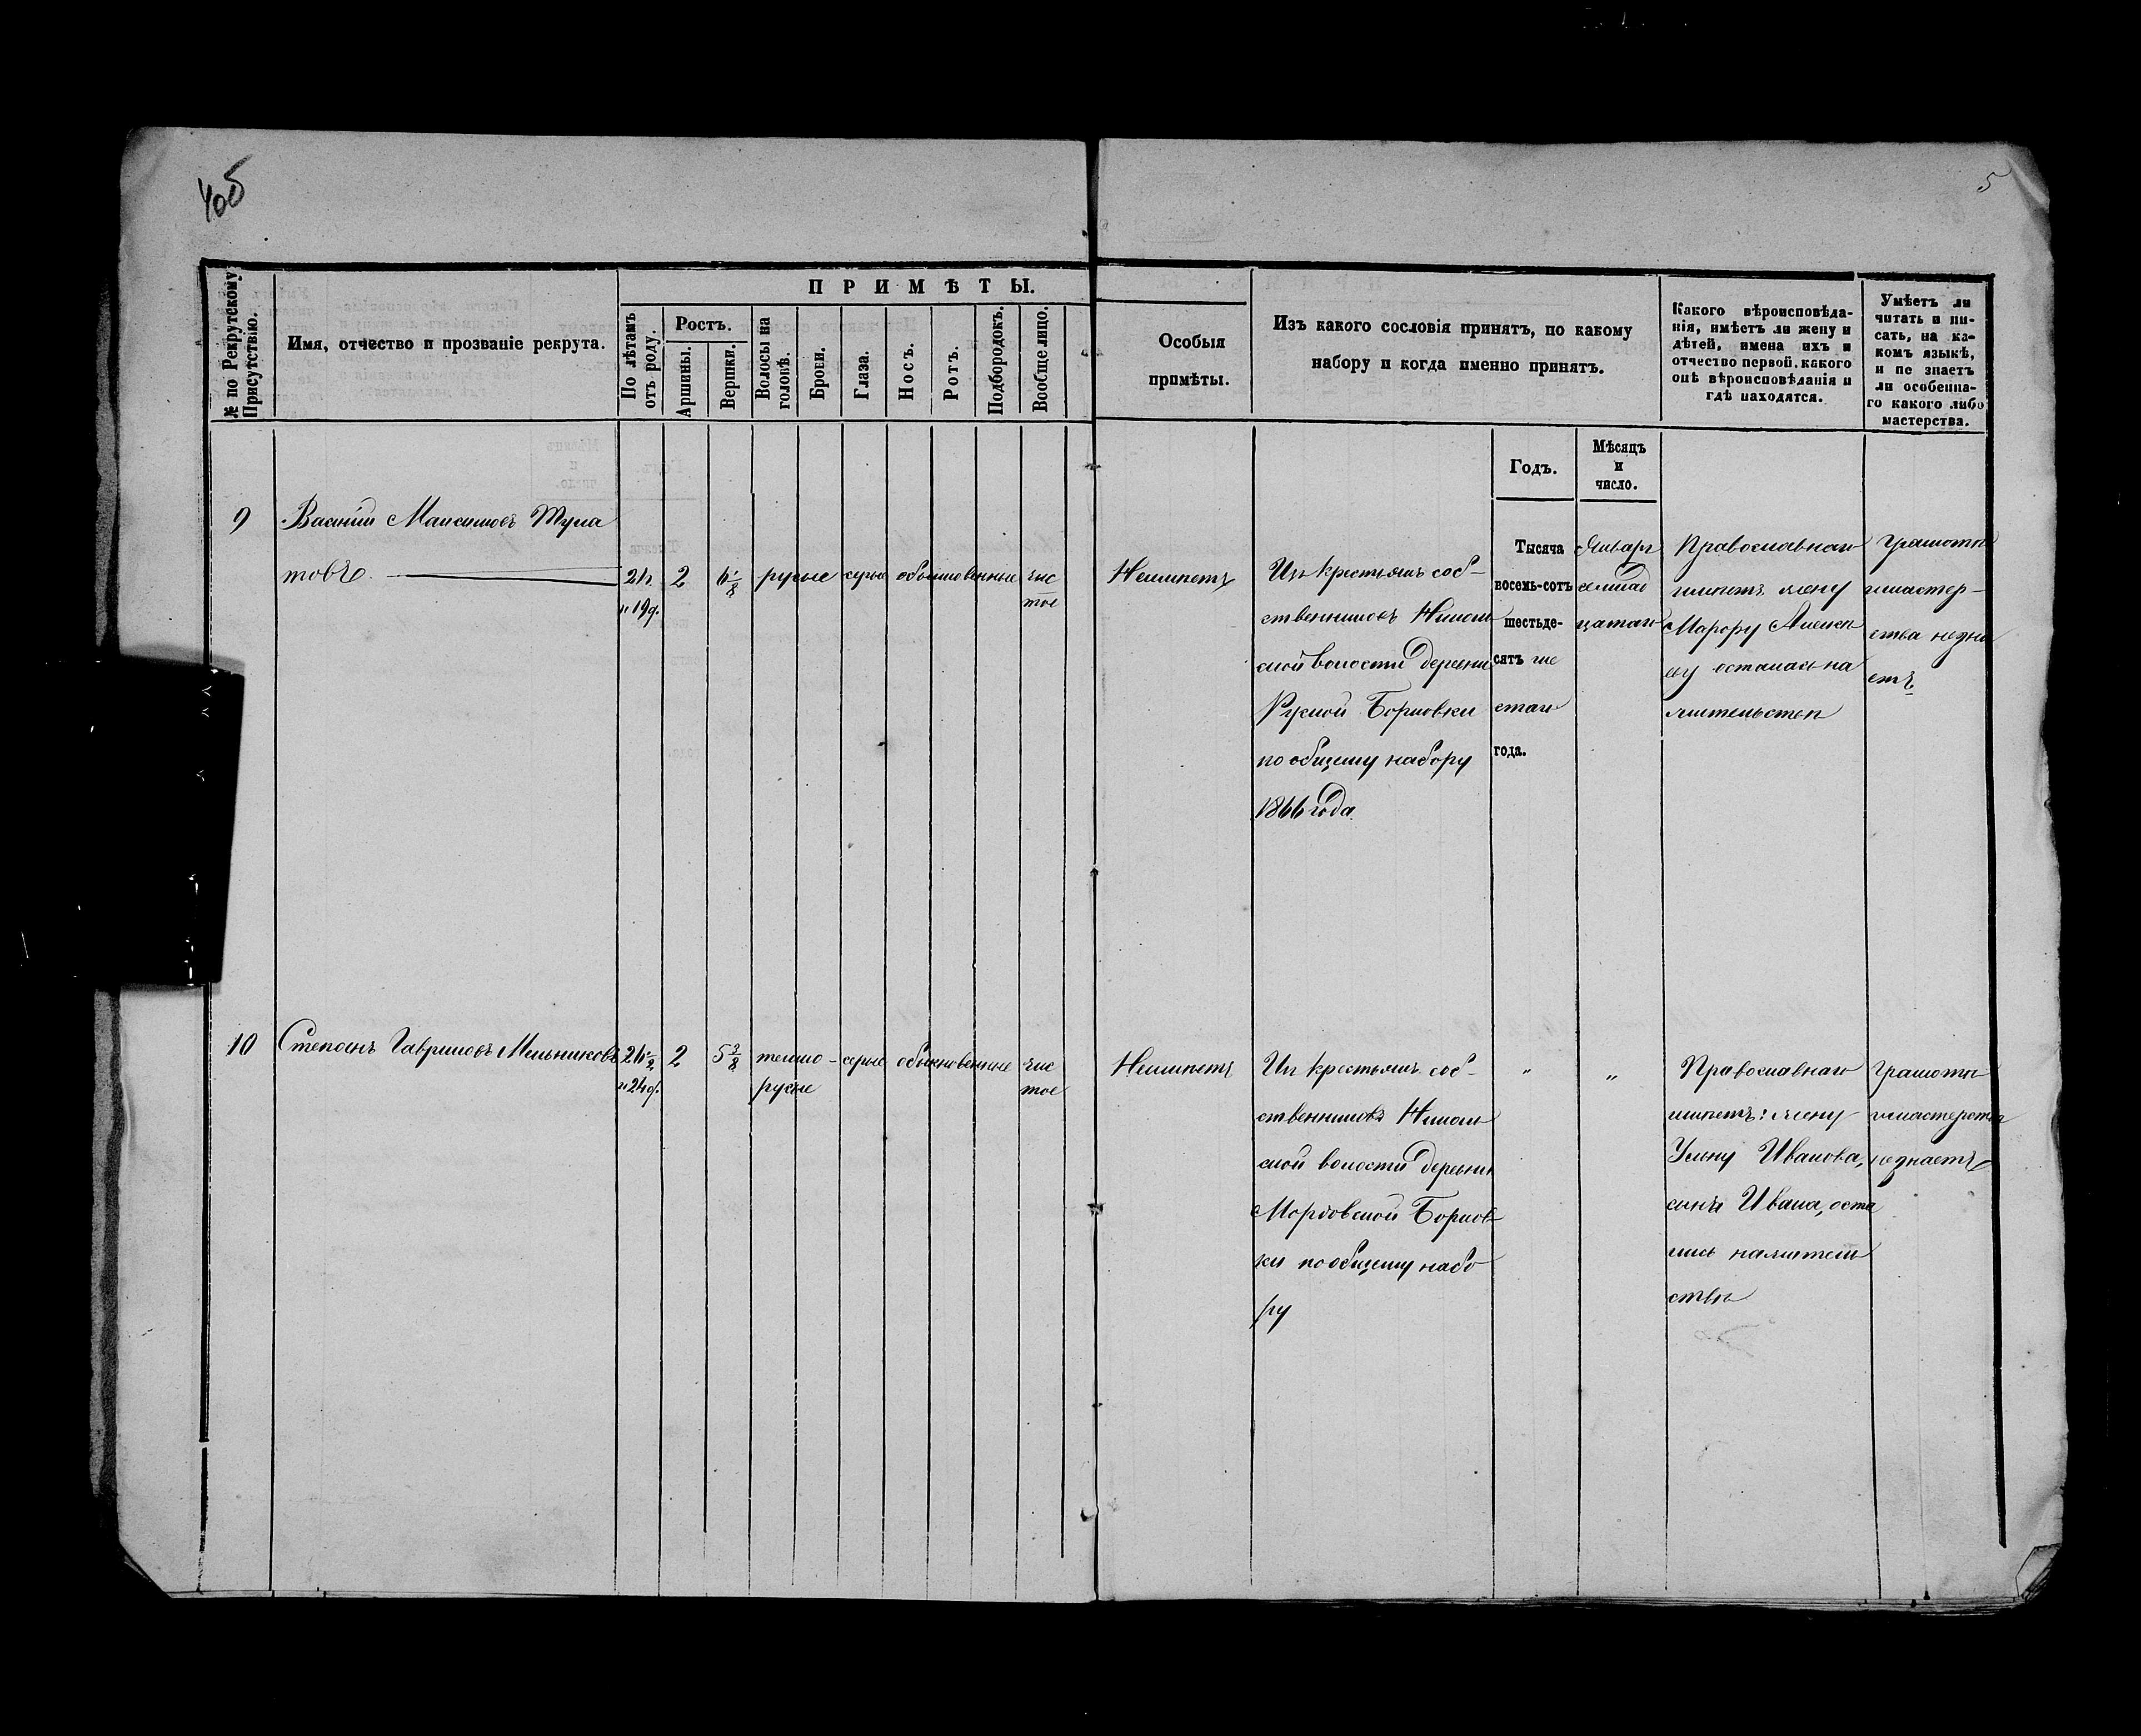 4об
5
№ по Рекрутскому Присутствію.
Имя, отчество и прозваніе рекрута.
ПРИМѢТЫ.
По лѣтамъ отъ роду.
Ростъ.
Аршины.
Вершки.
Волосы на головѣ.
Брови.
Глаза.
Носъ.
Ротъ.
Подбородокъ.
Вообще лицо.
Особыя
примѣты.
Изъ какого сословія принятъ, по какому
набору и когда именно принятъ.
Какого вѣроисповѣда-
нія, имѣетъ ли жену и
дѣтей, имена ихъ и
отчество первой, какого
онѣ вѣроисповѣданія и
гдѣ находятся.
Умѣетъ ли
читать и пи-
сать, на ка-
комъ языкѣ,
и не знаетъ
ли особенна-
го какого либо
мастерства.
Годъ.
Мѣсяцъ
и
число.
9
Василій Максимовъ
товъ
2
русые
серые
обыкновенные
чис
тое
Неимѣетъ
Изъ крестьянъ соб-
ственниковъ
ской волости деревни
Руской Борковки
по общему набору
1866 года
Тысяча
восемь-сотъ
шестьде-
сятъ ше
стаго
года.
Январь
семнад
цатаго
Православнаго
имѣетъ жену
Алексѣ
еву осталась на
жительствѣ
Грамоты
имастер-
ства незна
етъ
10
Степанъ Гавриловъ Мельниковъ
2
5 3/8
темно-
русые
серые
обыкновенные
чис
тое
Неимѣетъ
Изъ крестьянъ соб-
ственниковъ
ской волости деревни
Мордовской Борков-
ки по общему набо
ру
"
"
Православнаго
имѣетъ: жену
Ульяну Иванова,
сына Ивана, оста
лись нажитель
ствѣ
Грамоты
имастерства
незнаетъ